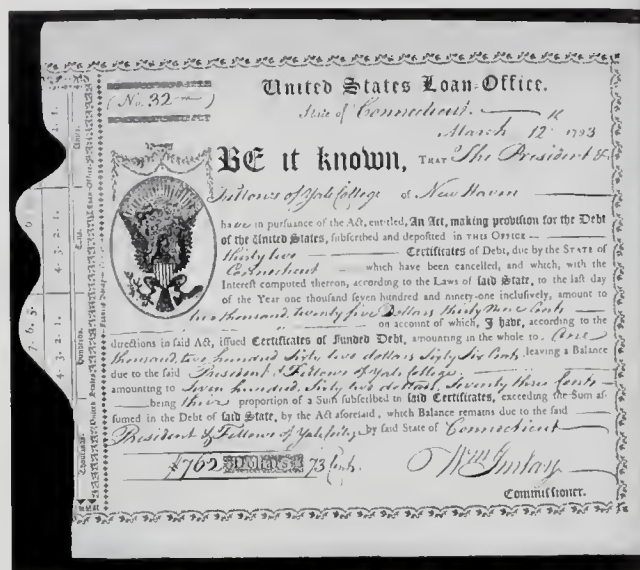 United States Loan-Office.
(No. 32)
State of Connecticut.
March 12 1793
BE it known, THAT The President &
Fellows of Yale College of New Haven
have in pursuance of the Act, entitled, An Act, making provision for the Debt
of the United States, subscribed and deposited in THIS OFFICE
thirty two Certificates of Debt, due by the STATE of
Connecticut which have been cancelled, and which, with the
Interest computed thereon, according to the Laws of said State, to the last day
of the Year one thousand seven hundred and ninety-one inclusively, amount to
two thousand, twenty five Dollars thirty Nine Cents
on account of which, I have, according to the
directions in said Act, issued Certificates of Funded Debt, amounting in the whole to One
thousand, two hundred Sixty two dollars Sixty Six Cents leaving a Balance
due to the said President & Fellows of Yale College
amounting to Seven hundred, Sixty two dollars, Seventy three Cents
being their proportion of a Sum subscribed in said Certificates, exceeding the Sum as-
sumed in the Debt of said State, by the Act aforesaid, which Balance remains due to the said
President & Fellows of Yale by said State of Connecticut
$762 Dollars 73 Cents.
Wm Imlay
Commissioner.
Thousands.
Hundreds.
7. 6. 5.
4. 3. 2. 1.
4. 3. 2. 1.